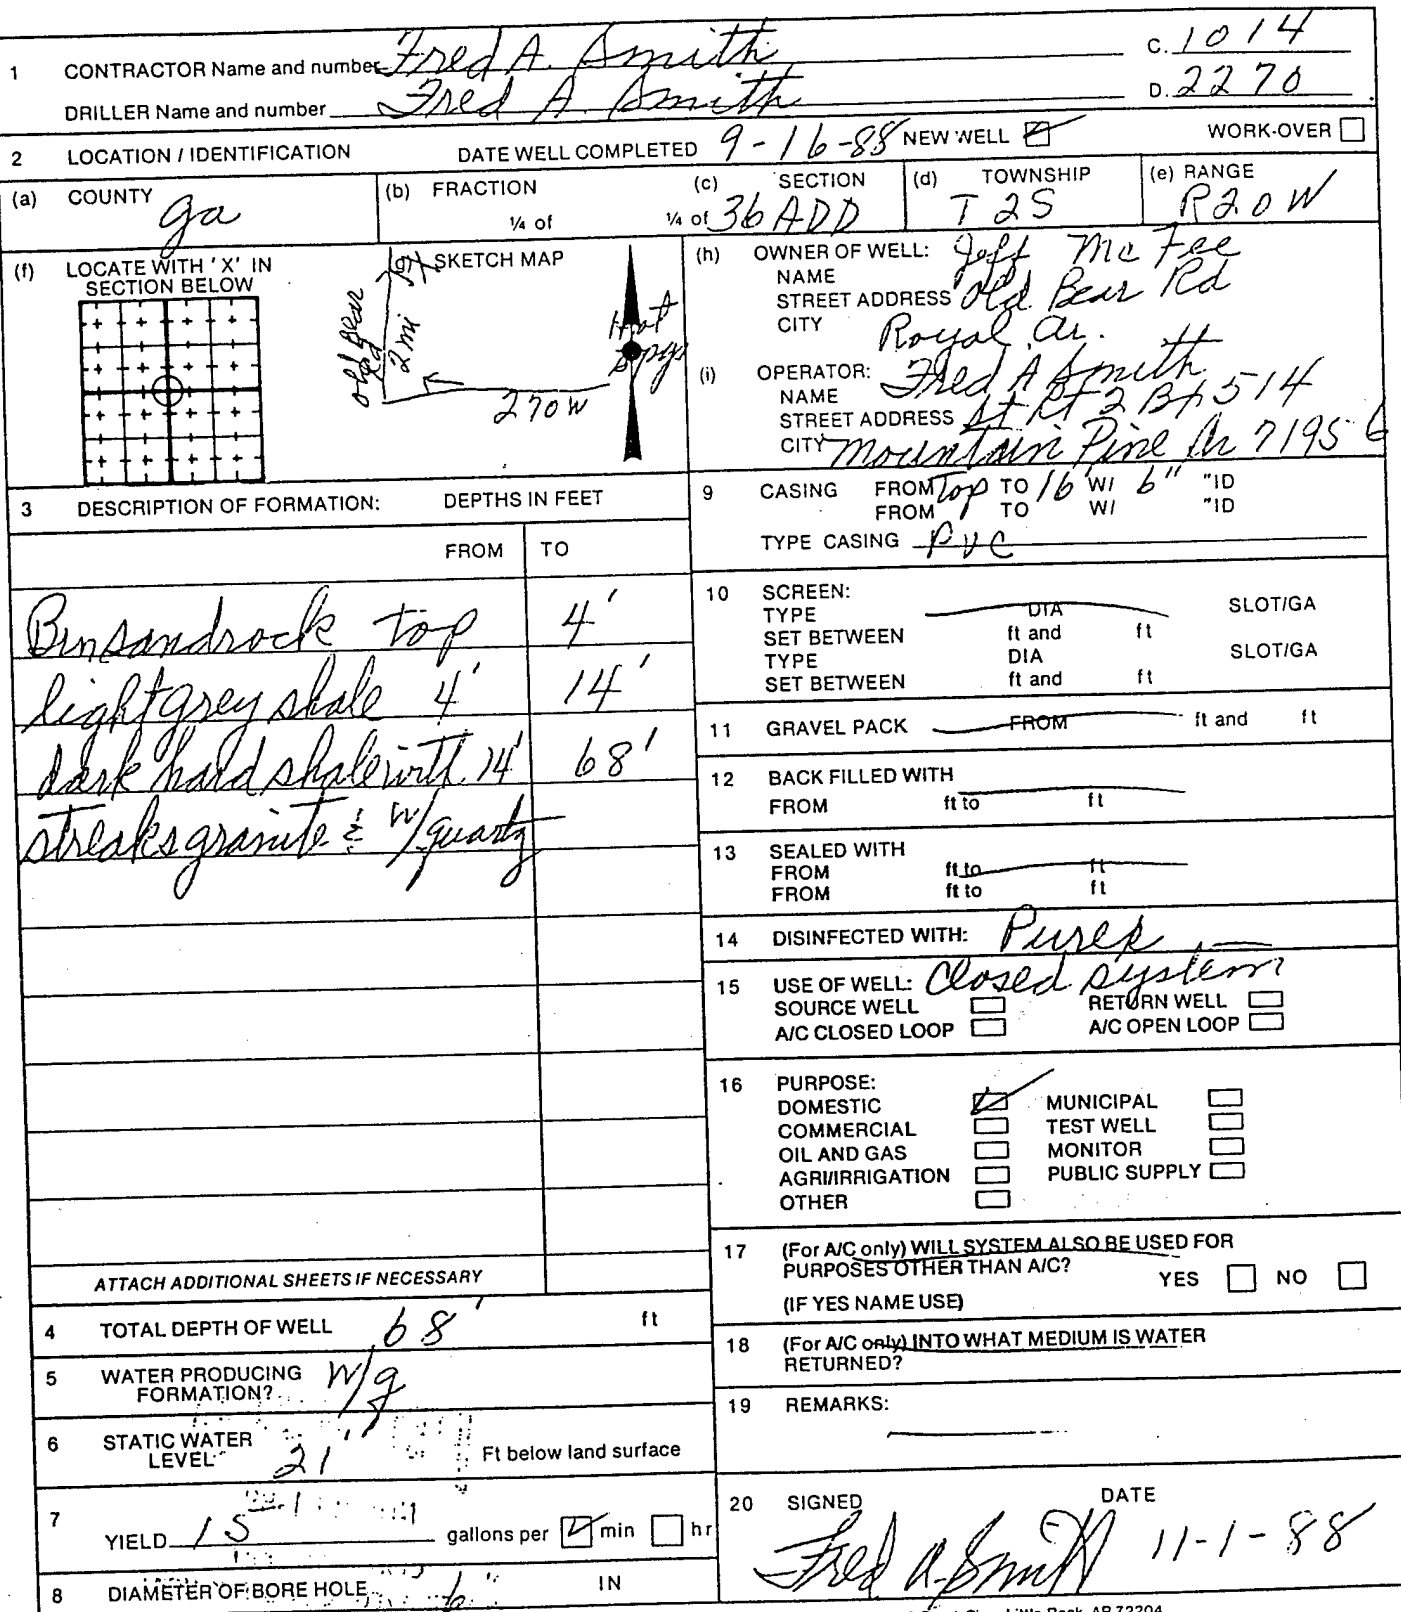 1 CONTRACTOR Name and number Fred A. Smith C. 1014
DRILLER Name and number Fred A. Smith D. 2270
2 LOCATION / IDENTIFICATION DATE WELL COMPLETED 9-16-88 NEW WELL WORK-OVER
(a) COUNTY (b) FRACTION (c) SECTION (d) TOWNSHIP (e) RANGE
Ga ¼ of ¼ of 36 ADD T 2S R20W
(f) LOCATE WITH 'X' IN SECTION BELOW
(g) SKETCH MAP
Old Bear Rd
2 mi
270 W
Hot Spgs
(h) OWNER OF WELL: Jeff McFee
NAME
STREET ADDRESS Old Bear Rd
CITY Royal Ar.
(i) OPERATOR: Fred A Smith
NAME
STREET ADDRESS St Rt 2 Bx 514
CITY Mountain Pine Ar 71956
3 DESCRIPTION OF FORMATION: DEPTHS IN FEET
FROM TO
Brn sandrock top 4'
light grey shale 4' 14'
dark hard shale with 14' 68'
streaks granite & w/quartz
ATTACH ADDITIONAL SHEETS IF NECESSARY
4 TOTAL DEPTH OF WELL 68' ft
5 WATER PRODUCING FORMATION? W/g
6 STATIC WATER LEVEL 21' Ft below land surface
7 YIELD 15 gallons per min hr
8 DIAMETER OF BORE HOLE 6" IN
9 CASING FROM Top TO 16' W/ 6" "ID
FROM TO W/ "ID
TYPE CASING PVC
10 SCREEN:
TYPE DIA SLOT/GA
SET BETWEEN ft and ft
TYPE DIA SLOT/GA
SET BETWEEN ft and ft
11 GRAVEL PACK FROM ft and ft
12 BACK FILLED WITH
FROM ft to ft
13 SEALED WITH
FROM ft to ft
FROM ft to ft
14 DISINFECTED WITH: Purex
15 USE OF WELL: Closed system
SOURCE WELL RETURN WELL
A/C CLOSED LOOP A/C OPEN LOOP
16 PURPOSE:
DOMESTIC MUNICIPAL
COMMERCIAL TEST WELL
OIL AND GAS MONITOR
AGRI/IRRIGATION PUBLIC SUPPLY
OTHER
17 (For A/C only) WILL SYSTEM ALSO BE USED FOR
PURPOSES OTHER THAN A/C? YES NO
(IF YES NAME USE)
18 (For A/C only) INTO WHAT MEDIUM IS WATER
RETURNED?
19 REMARKS:
20 SIGNED DATE
Fred A. Smith 11-1-88
Little Rock, AR 72204